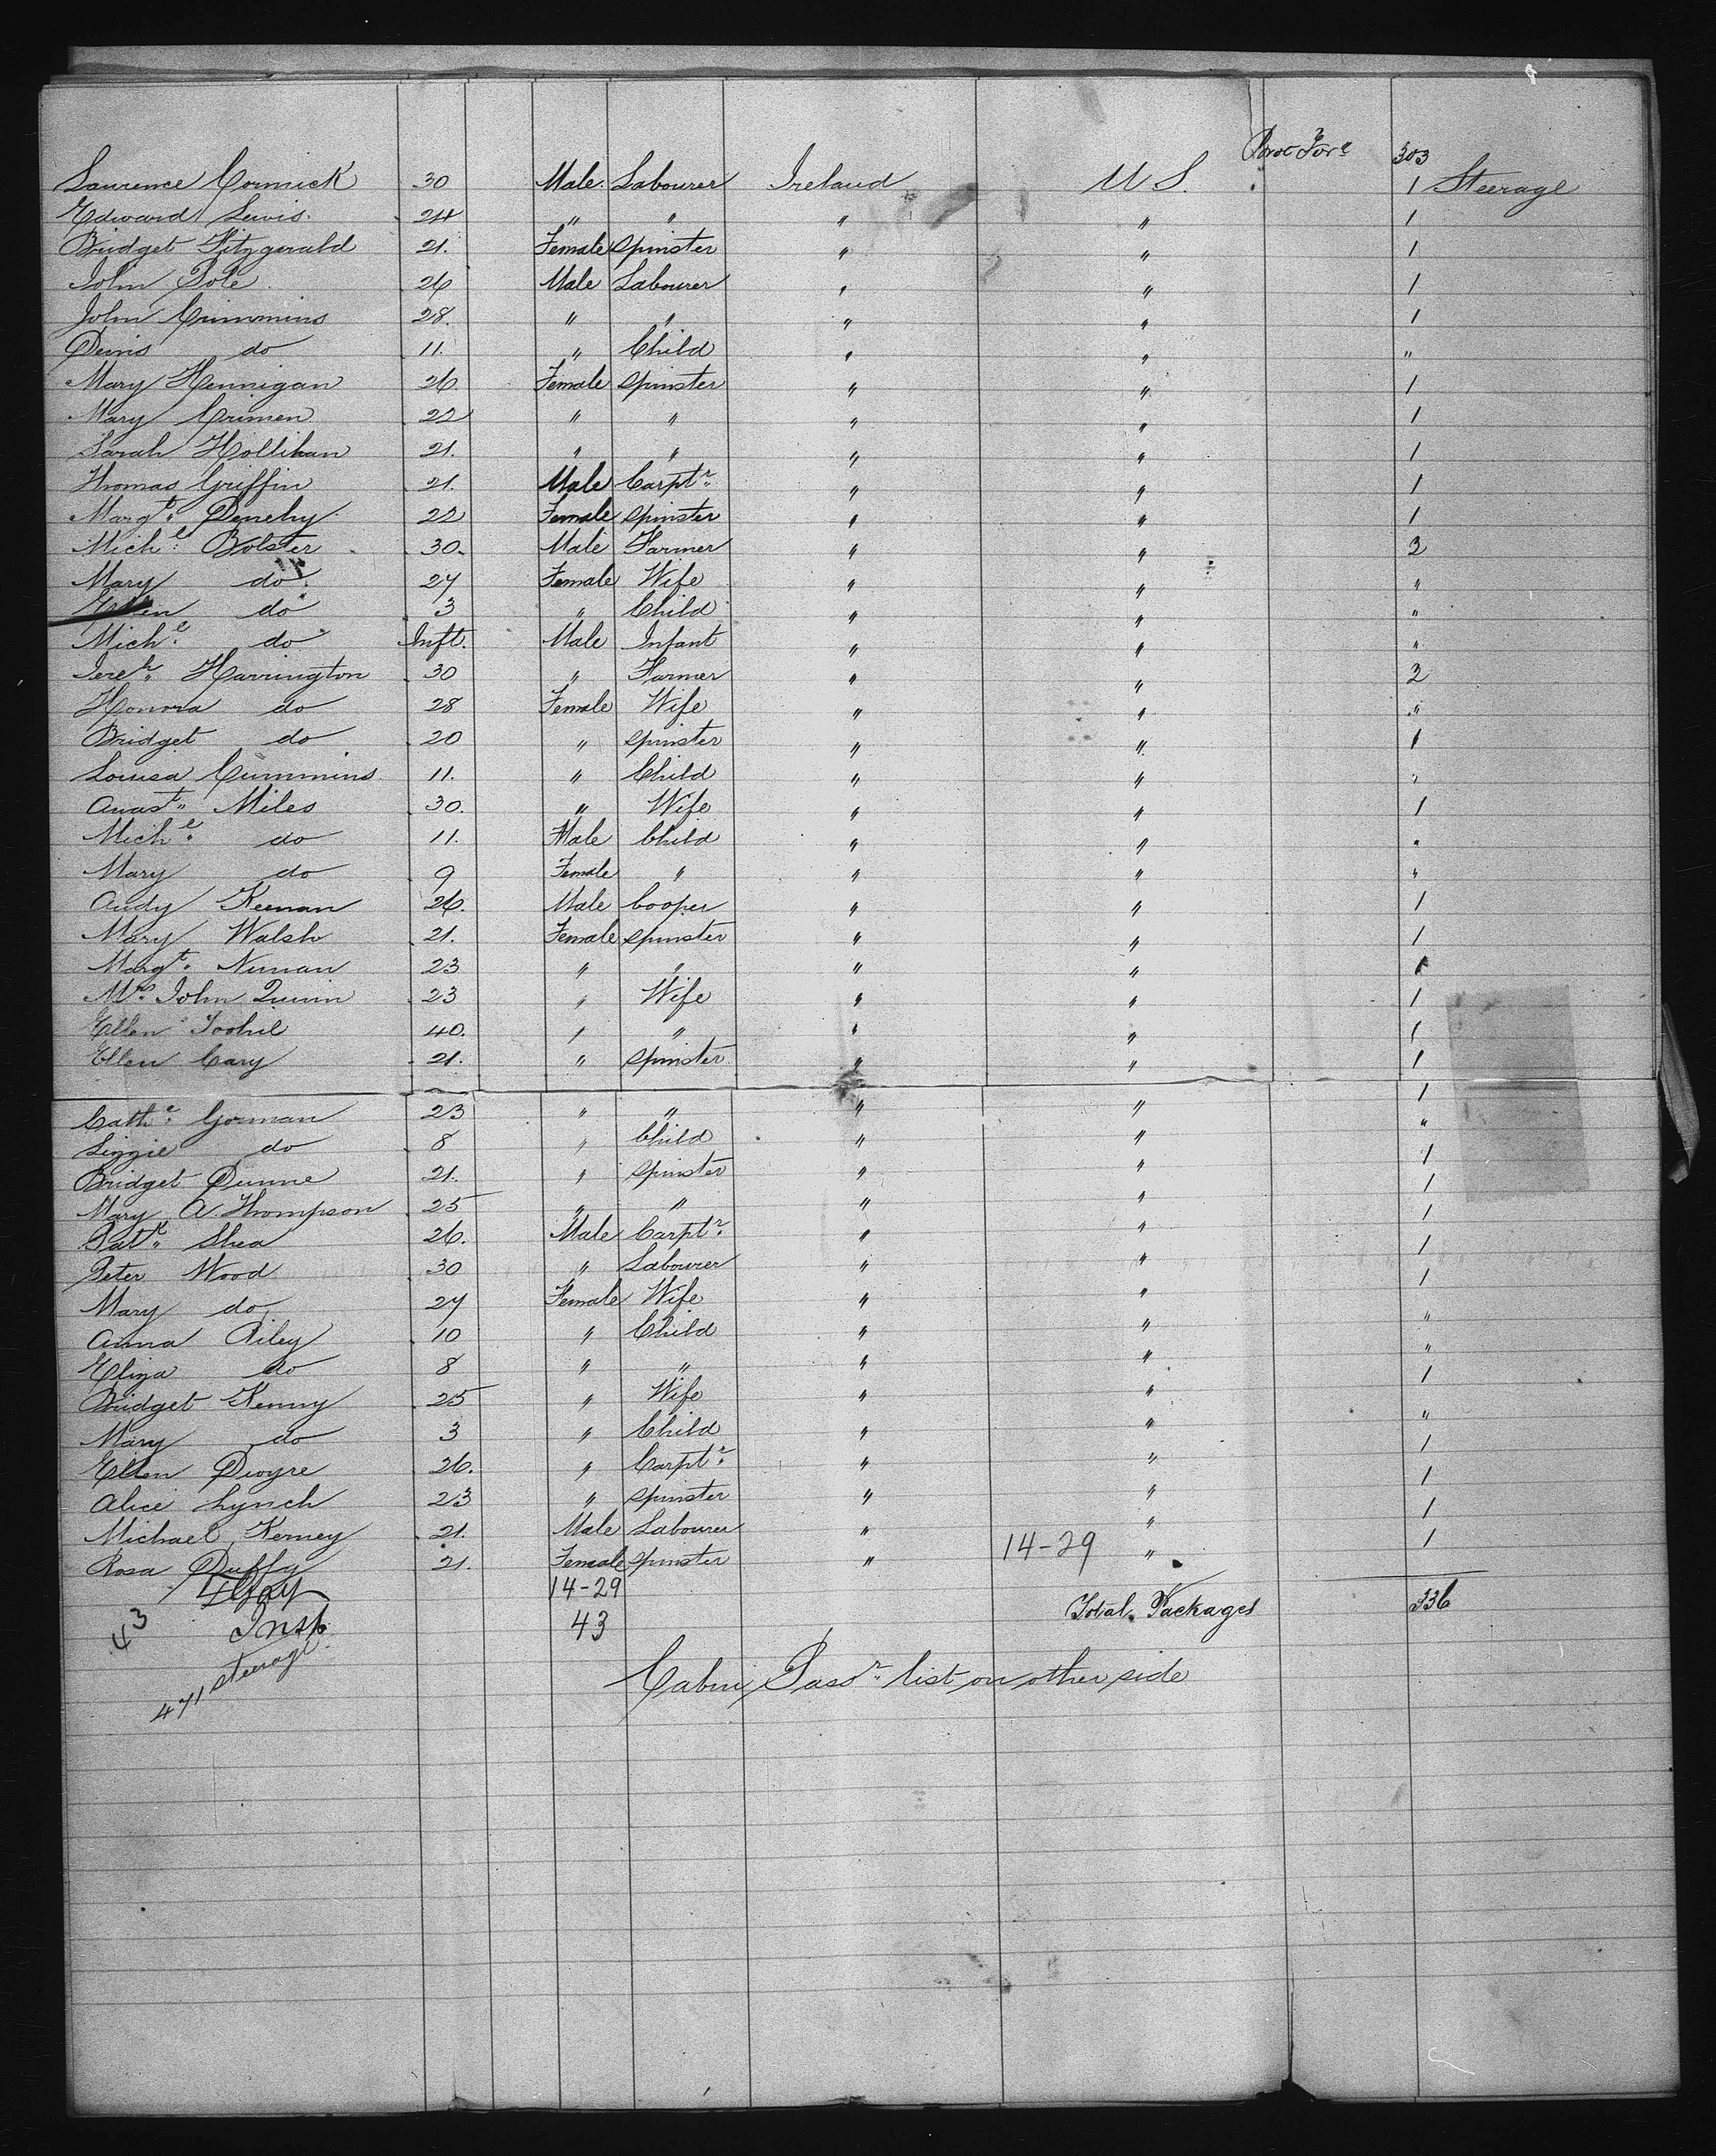 Brot Ford 303
Laurence Cormick 30 Male Labourer Ireland U S. 1 Steerage
Edward Lewis 24 " " " " 1
Bridget Fitzgerald 21. Female Spinster " " 1
John Pole 26 Male Labourer " " 1
John Crimmins 28. " " " " 1
Denis do 11. " Child " " "
Mary Hennigan 26 Female Spinster " " 1
Mary Crimen 22 " " " " 1
Sarah Hollihan 21. " " " " 1
Thomas Griffin 21. Male Carptr " " 1
Margt Denehy 22 Female Spinster " " 1
Michl Bolster 30. Male Farmer " " 2
Mary do 27 Female Wife " " "
Ellen do 3 " Child " " "
Michl do Inft. Male Infant " " "
Jereh Harrington 30 " Farmer " " 2
Honora do 28 Female Wife " " "
Bridget do 20 " Spinster " " 1
Louisa Cummins 11. " Child " " "
Anast Miles 30. " Wife " " 1
Michl do 11. Male Child " " "
Mary do 9 Female " " " "
Andy Keenan 26. Male Cooper " " 1
Mary Walsh 21. Female Spinster " " 1
Margt Nunan 23 " " " " 1
Mrs John Quinn 23 " Wife " " 1
Ellen Toohil 40. " " " " 1
Ellen Cary 21. " Spinster " " 1
Cathe Gorman 23 " " " " 1
Lizzie do 8 " Child " " "
Bridget Dunne 21. " Spinster " " 1
Mary A. Thompson 25 " " " " 1
Patk Shea 26. Male Carptr " " 1
Peter Wood 30 " Labourer " " 1
Mary do 27 Female Wife " " 1
Anna Riley 10 " Child " " "
Eliza do 8 " " " " "
Bridget Kenny 25 " Wife " " 1
Mary do 3 " Child " " "
Ellen Dwyre 26. " Carptr " " 1
Alice Lynch 23 " Spinster " " 1
Michael Kerney 21. Male Labourer " " 1
Rosa Duffy 21. Female Spinster " 14-29 " 1
14-29
Insp. 43 43 Total Packages 336
471 steerage
Cabin Passr list on other side